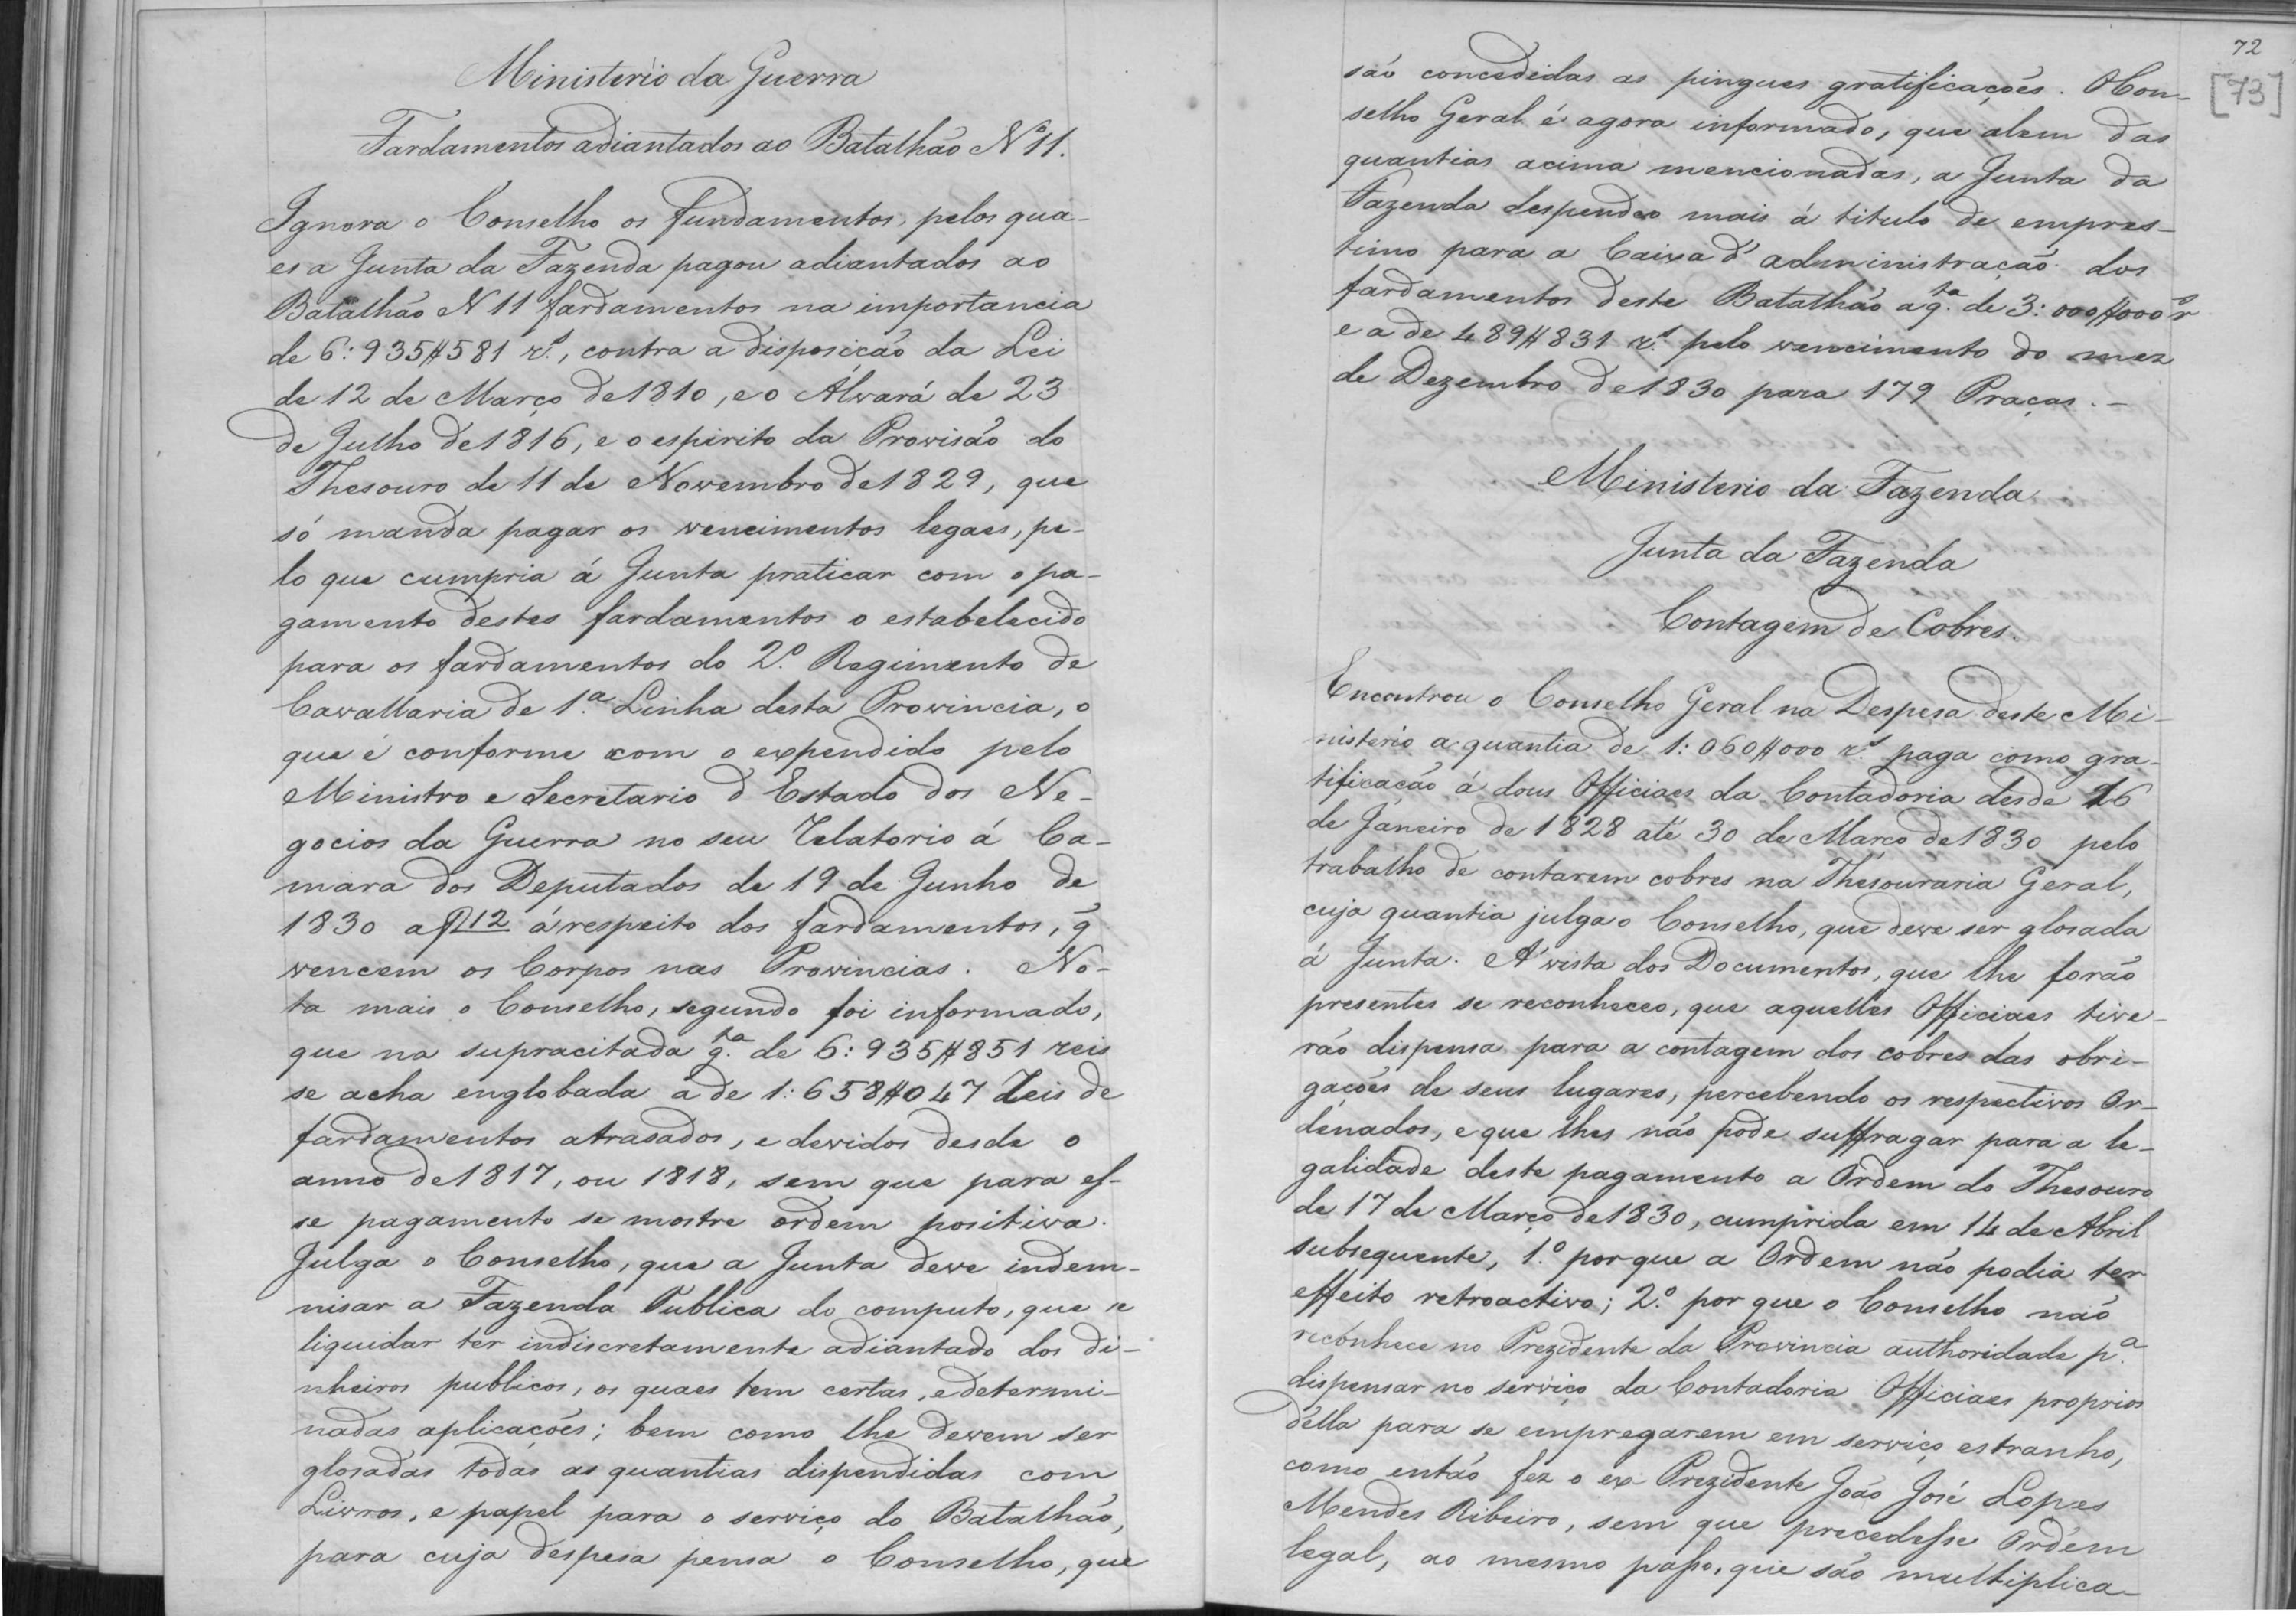 Ministerio da Guerra
Fardamentos adiantados ao Batalhão Nº 11.
Ignora o Conselho os fundamentos, pelos qua-
es a Junta da Fazenda pagou adiantados ao
Batalhão N 11 fardamentos na importancia
de 6:935$581 rs., contra a disposição da Lei
de 12 de Março de 1810, e o Alvará de 23
de Julho de 1816, e o espirito da Provisão do
Thesouro de 11 de Novembro de 1829, que
só manda pagar os vencimentos legaes, pe-
lo que cumpria á Junta praticar com o pa-
gamento destes fardamentos o estabelecido
para os fardamentos do 2.º Regimento de
Cavallaria de 1.ª Linha desta Provincia, o
que é conforme com o expendido pelo
Ministro e Secretario d'Estado dos Ne-
gocios da Guerra no seu Relatorio á Ca-
mara dos Deputados de 19 de Junho de
1830 a f 12 á respeito dos fardamentos, q̃
vencem os Corpos nas Provincias. No-
ta mais o Conselho, segundo foi informado,
que na supracitada q.ta de 6:935$851 reis
se acha englobada a de 1:658$047 Reis de
fardamentos atrasados, e devidos desde o
anno de 1817, ou 1818, sem que para es-
se pagamento se mostre ordem positiva.
Julga o Conselho, que a Junta deve indem-
nisar a Fazenda Publica do computo, que se
liquidar ter indiscretamente adiantado dos di-
nheiros publicos, os quaes tem certas, e determi-
nadas aplicações; bem como lhe devem ser
glosadas todas as quantias dispendidas com
Livros, e papel para o serviço do Batalhão,
para cuja despesa pensa o Conselho, que
72
[73]
são concedidas as pingues gratificações. O Con-
selho Geral é agora informado, que alem das
quantias acima mencionadas, a Junta da
Fazenda despendeo mais á titulo de empres-
timo para a Caixa d'administração dos
fardamentos deste Batalhão a q.ta de 3:000$000 rs
e a de 489$831 rs. pelo vencimento do mez
de Dezembro de 1830 para 179 Praças.-
Ministerio da Fazenda
Junta da Fazenda
Contagem de Cobres.
Encontrou o Conselho Geral na Despesa deste Mi-
nisterio a quantia de 1:060$000 rs. paga como gra-
tificação á dous Officiaes da Contadoria desde 16
de Janeiro de 1828 até 30 de Março de 1830 pelo
trabalho de contarem cobres na Thesouraria Geral,
cuja quantia julga o Conselho, que deve ser glosada
á Junta. A' vista dos Documentos, que lhe forão
presentes se reconheceo, que aquelles Officiaes tive-
rão dispensa para a contagem dos cobres das obri-
gações de seus lugares, percebendo os respectivos Or-
denados, e que lhes não pode suffragar para a le-
galidade deste pagamento a Ordem do Thesouro
de 17 de Março de 1830, cumprida em 14 de Abril
subsequente, 1.º porque a Ordem não podia ter
effeito retroactivo; 2.º por que o Conselho não
reconhece no Prezidente da Provincia authoridade p.a
dispensar no serviço da Contadoria Officiaes proprios
della para se empregarem em serviço estranho,
como então fez o ex-Prezidente João José Lopes
Mendes Ribeiro, sem que precedesse Ordem
legal, ao mesmo passo, que são multiplica-